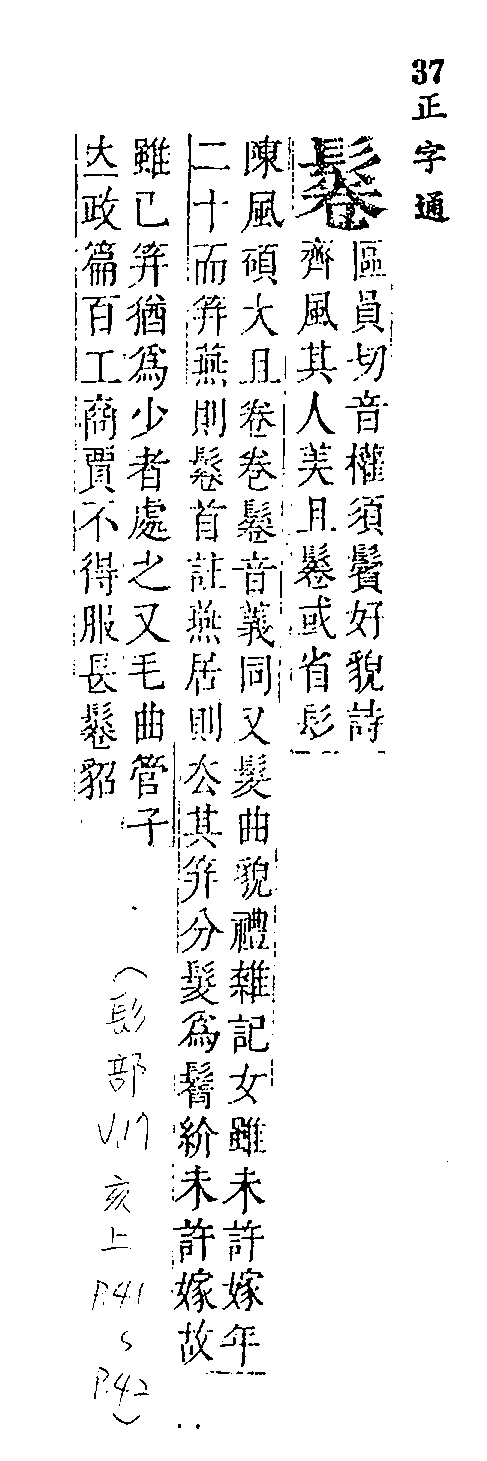 37正字通
鬈
區員切音權須鬢好貌詩
齊風其人美且鬈或省髟
陳風碩大且卷卷鬈音義同又髮曲貌禮雜記女雖未許嫁年
二十而筓燕則鬈首註燕居則厺其筓分髮爲鬌紒未許嫁故
雖已筓猶爲少者處之又毛曲管子
大政篇百工商賈不得服長鬈貂
(髟部V.17亥上P.41~P.42)